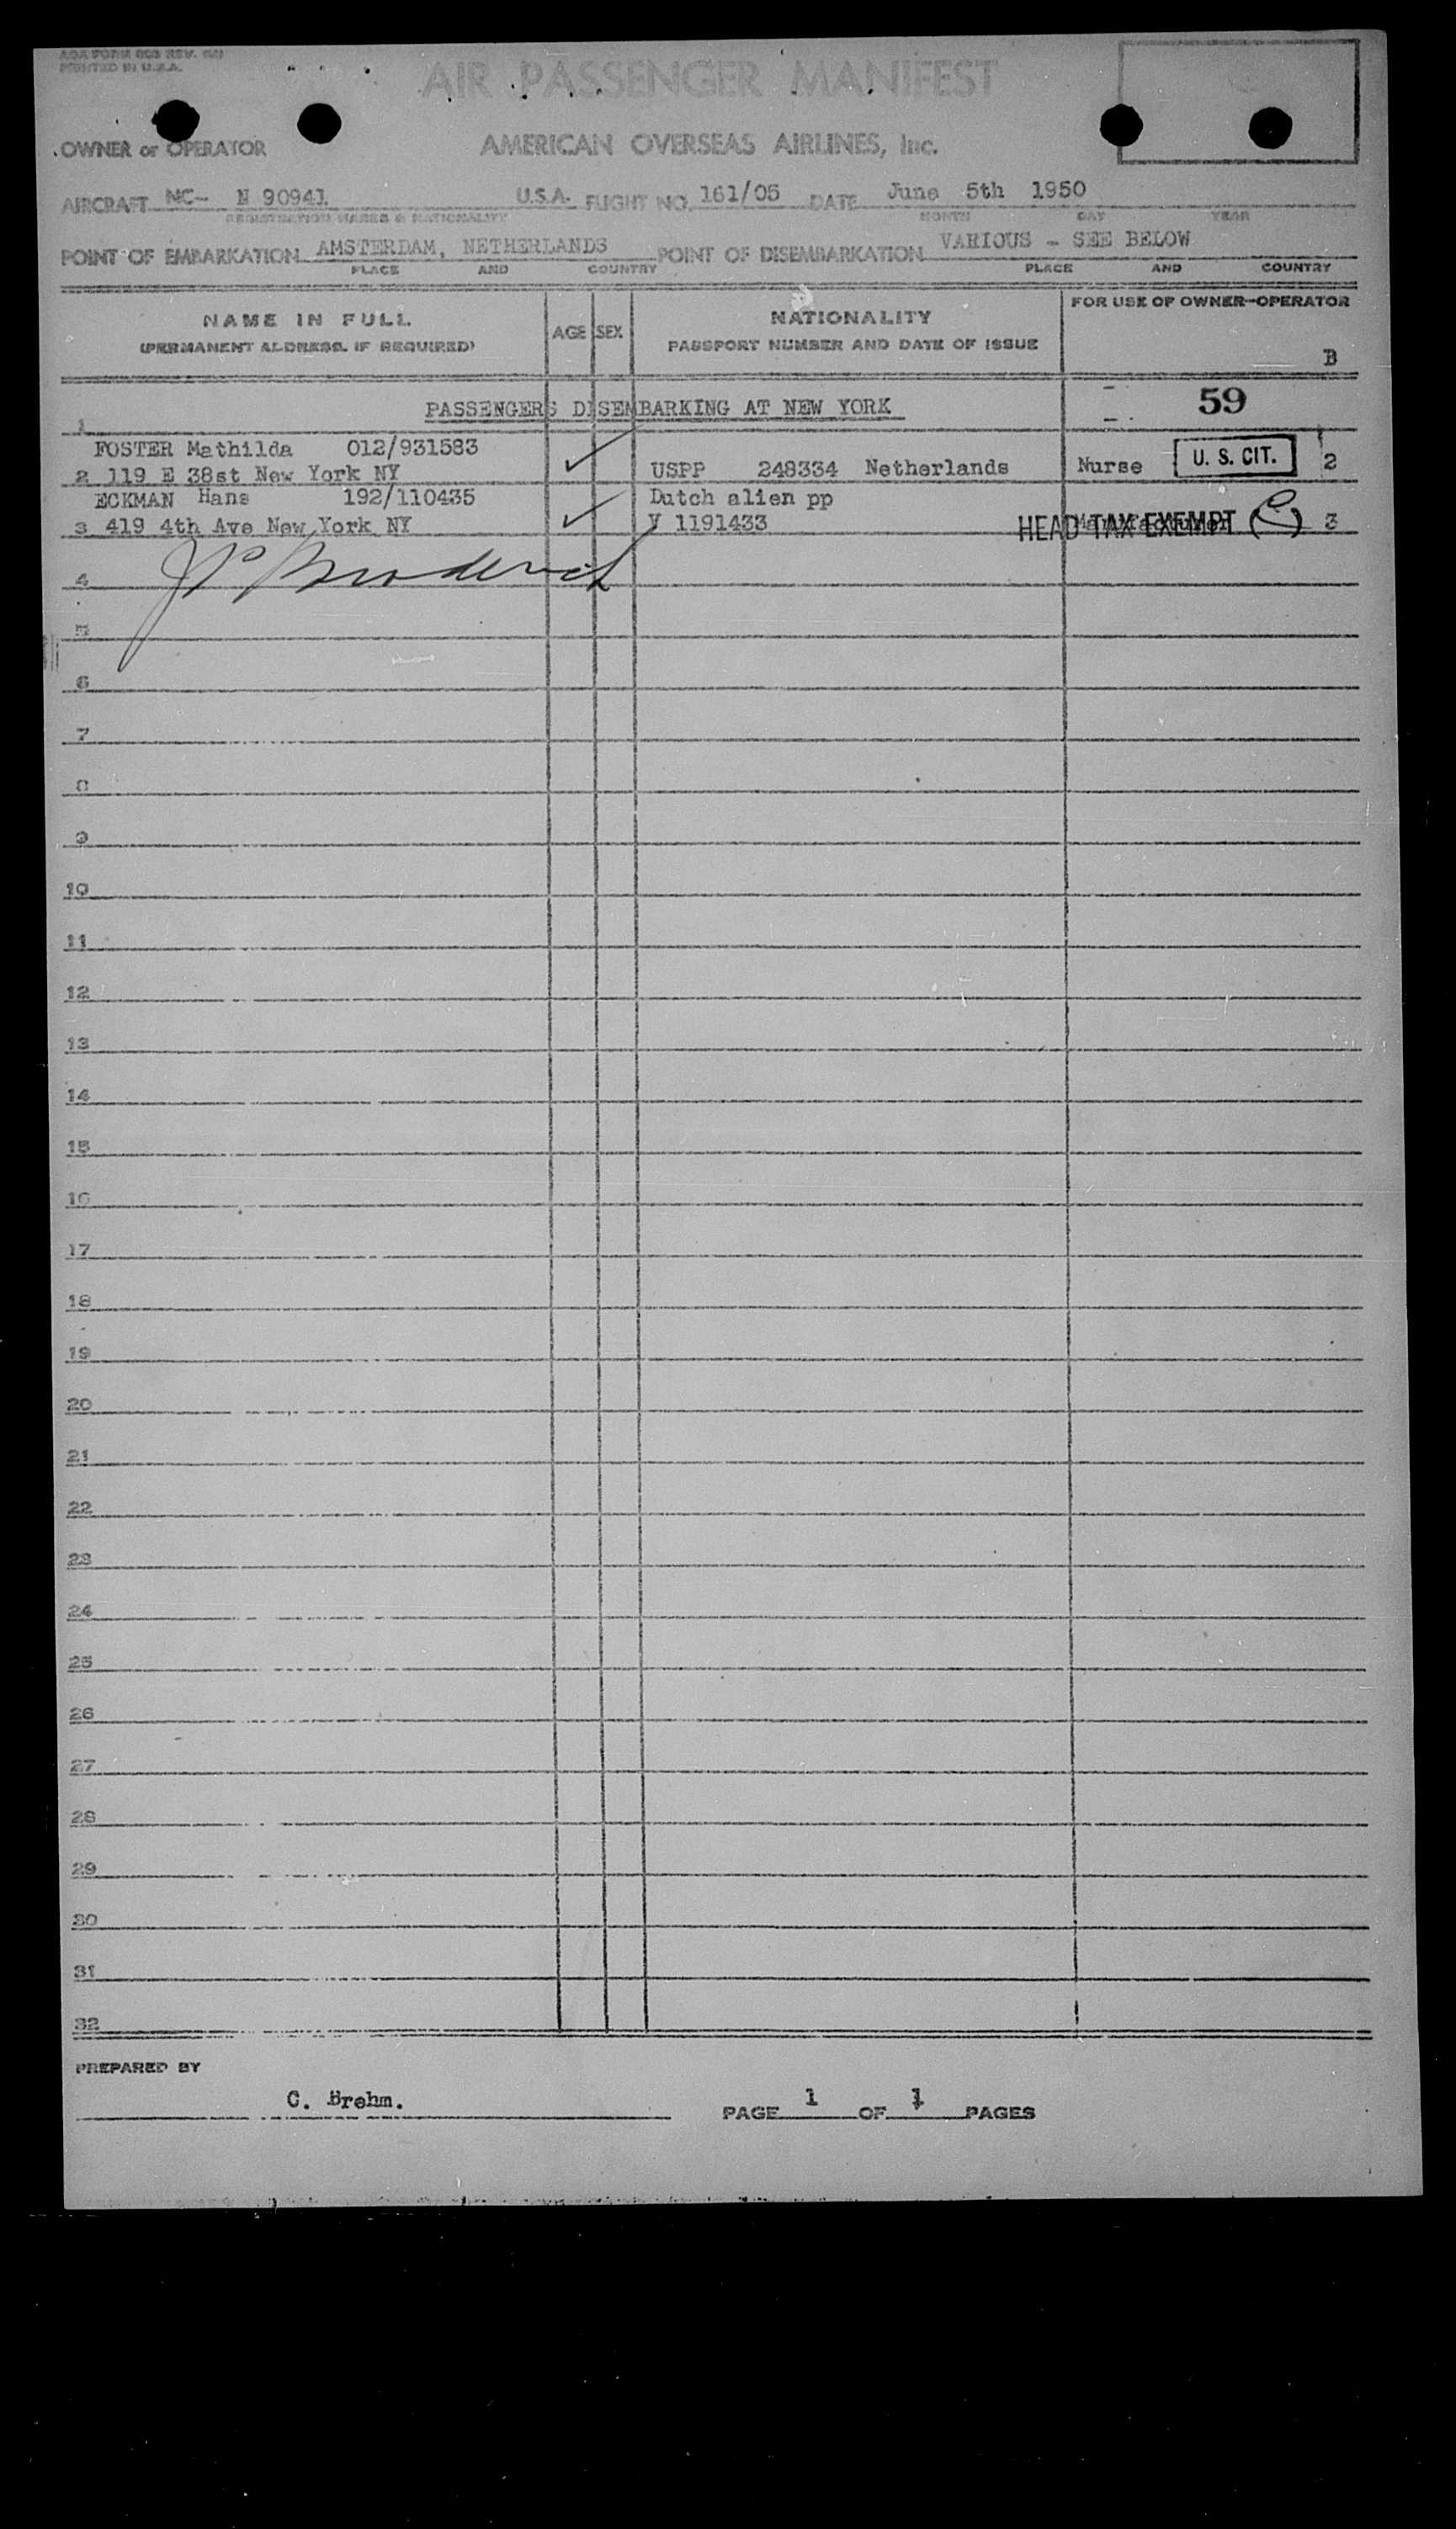 AOA FORM
PRINTED IN U.S.A.
AIR PASSENGER MANIFEST
OWNER or OPERATOR AMERICAN OVERSEAS AIRLINES, Inc.
AIRCRAFT NC- N 90941 U.S.A. FLIGHT NO. 161/05 DATE June 5th 1950
REGISTRATION MARKS & NATIONALITY MONTH DAY YEAR
POINT OF EMBARKATION AMSTERDAM, NETHERLANDS POINT OF DISEMBARKATION VARIOUS - SEE BELOW
PLACE AND COUNTRY PLACE AND COUNTRY
NAME IN FULL AGE SEX NATIONALITY FOR USE OF OWNER-OPERATOR
(PERMANENT ADDRESS. IF REQUIRED) PASSPORT NUMBER AND DATE OF ISSUE
B
1 PASSENGERS DISEMBARKING AT NEW YORK 59
FOSTER Mathilda 012/931583
2 119 E 38st New York NY USPP 248334 Netherlands Nurse U. S. CIT. 2
ECKMAN Hans 192/110435 Dutch alien pp
3 419 4th Ave New York NY V 1191433 HEAD TAX EXEMPT 3
4 J P Broderick
5
6
7
8
9
10
11
12
13
14
15
16
17
18
19
20
21
22
23
24
25
26
27
28
29
30
31
32
PREPARED BY
C. Brehm. PAGE 1 OF 1 PAGES